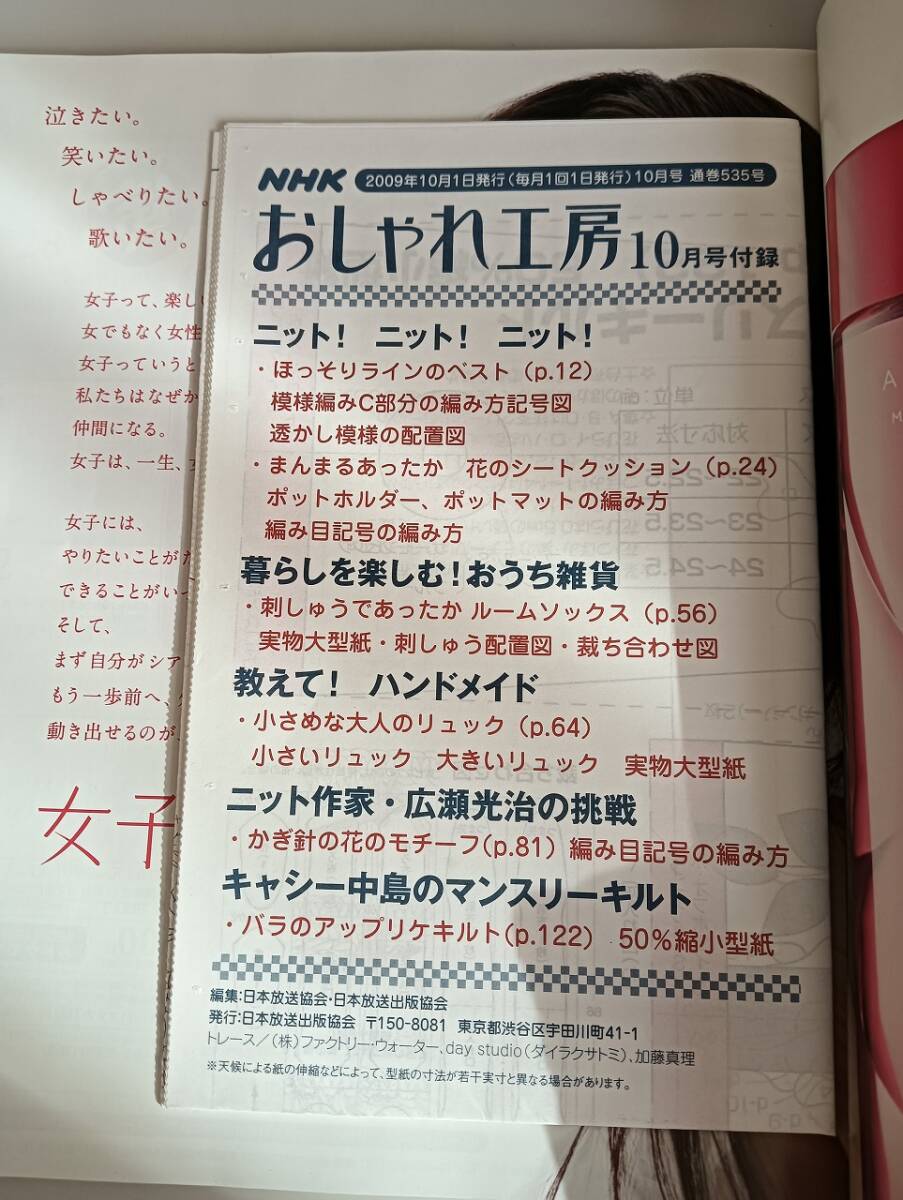 泣きたい。
笑いたい。
しゃべりたい。
歌いたい。
女子って、楽し
女でもなく女性
女子っていうと
私たちはなぜか
仲間になる。
女子は、一生、
女子には、
やりたいことが
できることがい
そして、
まず自分がシア
もう一歩前へ、
動き出せるのが、
女子
NHK 2009年10月1日発行(毎月1回1日発行)10月号 通巻535号
おしゃれ工房10月号付録
ニット! ニット! ニット!
・ほっそりラインのベスト(p.12)
模様編みC部分の編み方記号図
透かし模様の配置図
・まんまるあったか 花のシートクッション(p.24)
ポットホルダー、ポットマットの編み方
編み目記号の編み方
暮らしを楽しむ!おうち雑貨
・刺しゅうであったか ルームソックス(p.56)
実物大型紙・刺しゅう配置図・裁ち合わせ図
教えて! ハンドメイド
・小さめな大人のリュック(p.64)
小さいリュック 大きいリュック 実物大型紙
ニット作家・広瀬光治の挑戦
・かぎ針の花のモチーフ(p.81) 編み目記号の編み方
キャシー中島のマンスリーキルト
・バラのアップリケキルト(p.122) 50%縮小型紙
編集:日本放送協会・日本放送出版協会
発行:日本放送出版協会 〒150-8081 東京都渋谷区宇田川町41-1
トレース/(株)ファクトリー・ウォーター、day studio(ダイラクサトミ)、加藤真理
※天候による紙の伸縮などによって、型紙の寸法が若干実寸と異なる場合があります。